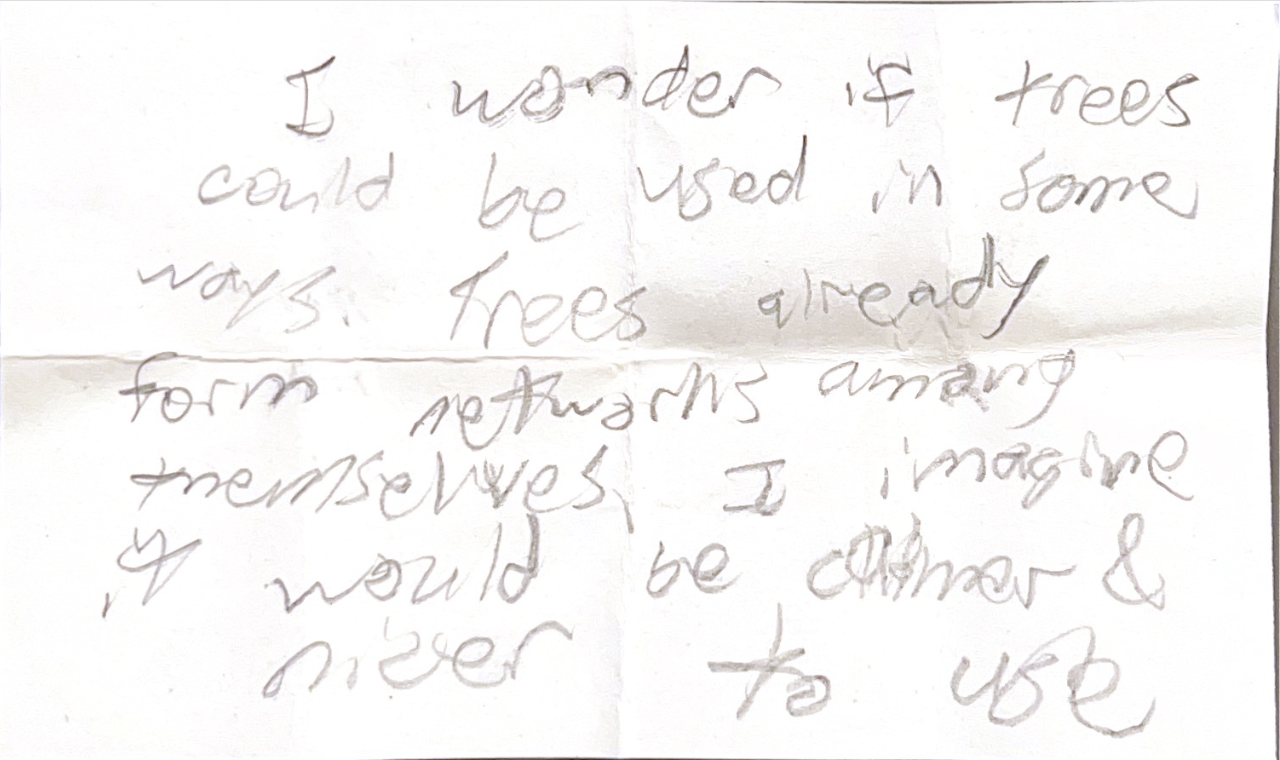 I wonder if trees
could be used in some
ways. Trees already
form networks among
themselves, I imagine
it would be calmer &
nicer to use